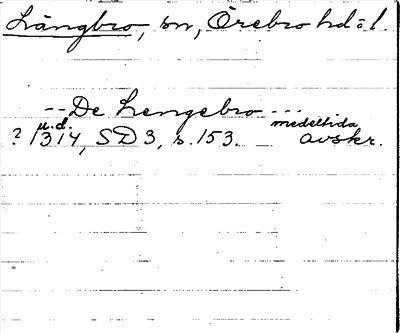 Långbro, sn, Örebro hd o l.
-- De Lengebro ---
u.d. medeltida
? 1314, SD 3, s. 153. avskr.